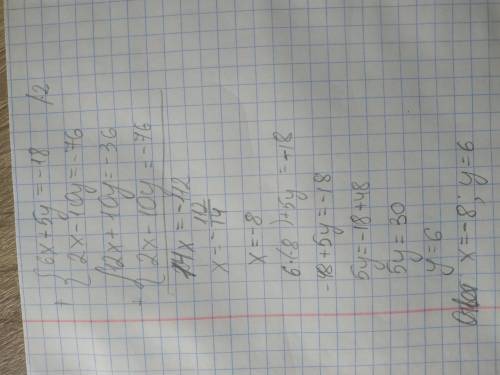 {6x+5y=-18 /·2
+ {2x-10y=-76
{12x+10y=-36
+ {2x-10y=-76
14x=-112
x=-8
6·(-8)+5y=-18
-18+5y=-18
5y=-18+48
5y=30
y=6
x=-8; y=6